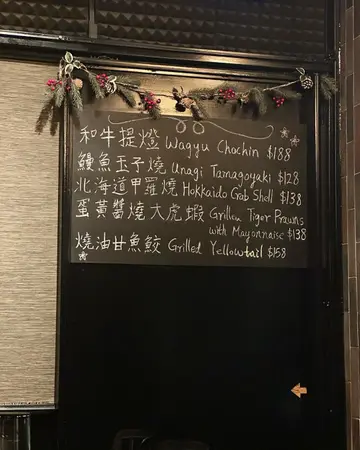 和牛提燈 Wagyu Chochin $188
鰻魚玉子燒 Unagi Tamagoyaki $128
北海道甲羅燒 Hokkaido Crab Shell $138
蛋黃醬燒大虎蝦 Grilled Tiger Prawns
with Mayonnaise $138
燒油甘魚鮫 Grilled Yellowtail $158